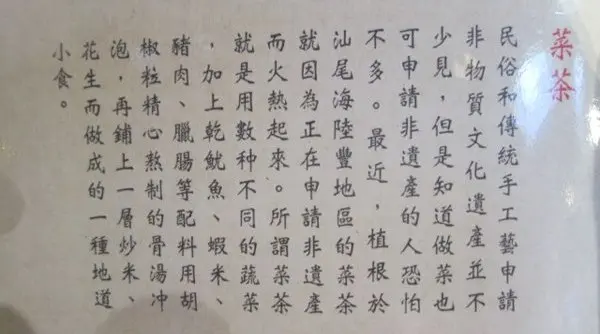 菜茶
民俗和傳統手工藝申請
非物質文化遺產並不
少見，但是知道做菜也
可申請非遺產的人恐怕
不多。最近，植根於
汕尾海陸豐地區的菜茶
就因為正在申請非遺產
而火熱起來。所謂菜茶
就是用數种不同的蔬菜
，加上乾魷魚、蝦米、
豬肉、臘腸等配料用胡
椒粒精心熬制的骨湯冲
泡，再鋪上一層炒米、
花生而做成的一種地道
小食。